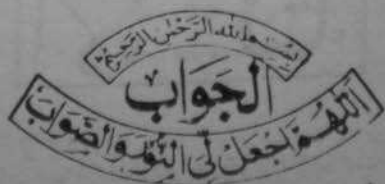 بسم الله الرحمن الرحيم
الجواب
اللهم اجعل لي النور والصواب